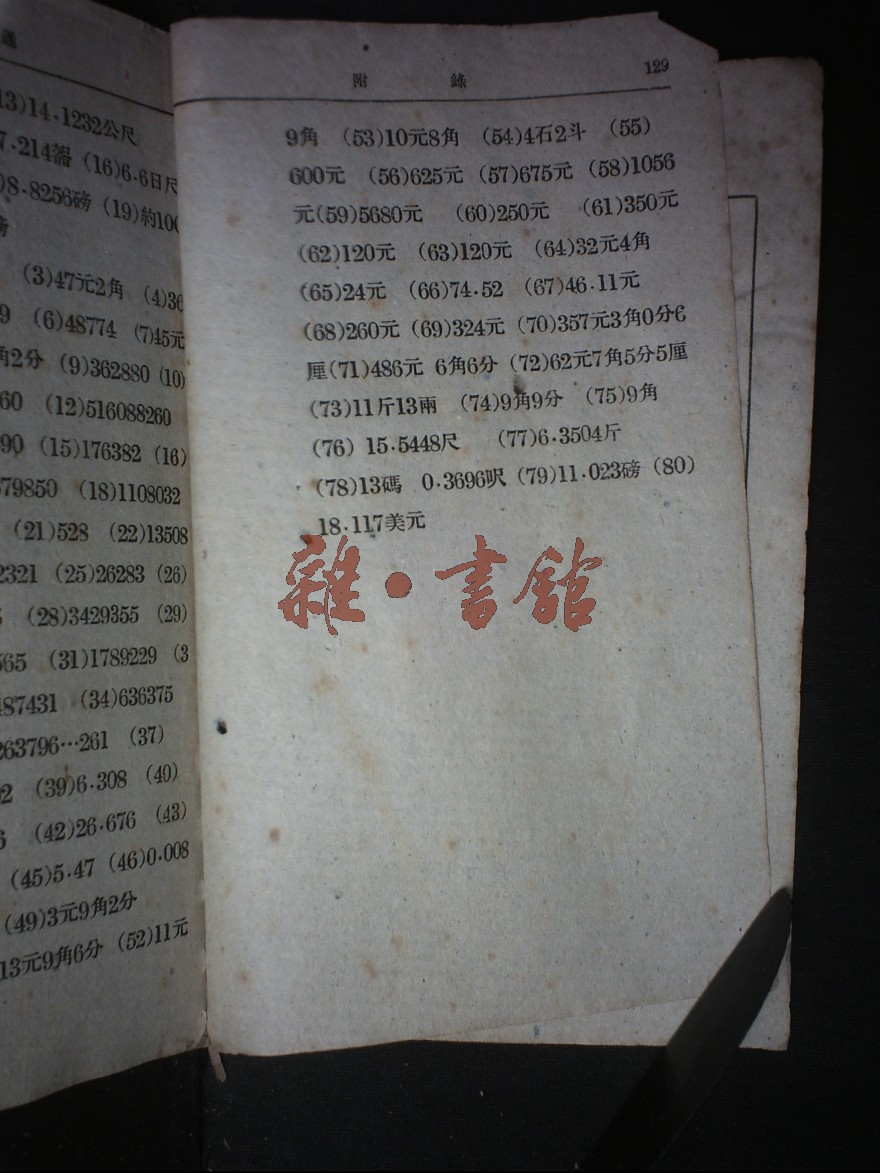 13)14.1232公尺
7.214 (16)6.6日尺
)8.8256磅 (19)約100
磅
(3)47元2角 (4)36
9 (6)48774 (7)45元
角2分 (9)362880 (10)
60 (12)516088260
90 (15)176382 (16)
79850 (18)1108032
(21)528 (22)13508
2321 (25)26283 (26)
(28)3429355 (29)
565 (31)1789229 (3
487431 (34)636375
263796…261 (37)
02 (39)6.308 (40)
6 (42)26.676 (43)
(45)5.47 (46)0.008
(49)3元9角2分
13元9角6分 (52)11元
附錄 129
9角 (53)10元8角 (54)4石2斗 (55)
600元 (56)625元 (57)675元 (58)1056
元(59)5680元 (60)250元 (61)350元
(62)120元 (63)120元 (64)32元4角
(65)24元 (66)74.52 (67)46.11元
(68)260元 (69)324元 (70)357元3角0分6
厘(71)486元 6角6分 (72)62元7角5分5厘
(73)11斤13兩 (74)9角9分 (75)9角
(76) 15.5448尺 (77)6.3504斤
(78)13碼 0.3696呎 (79)11.023磅 (80)
18.117美元
雜·書館